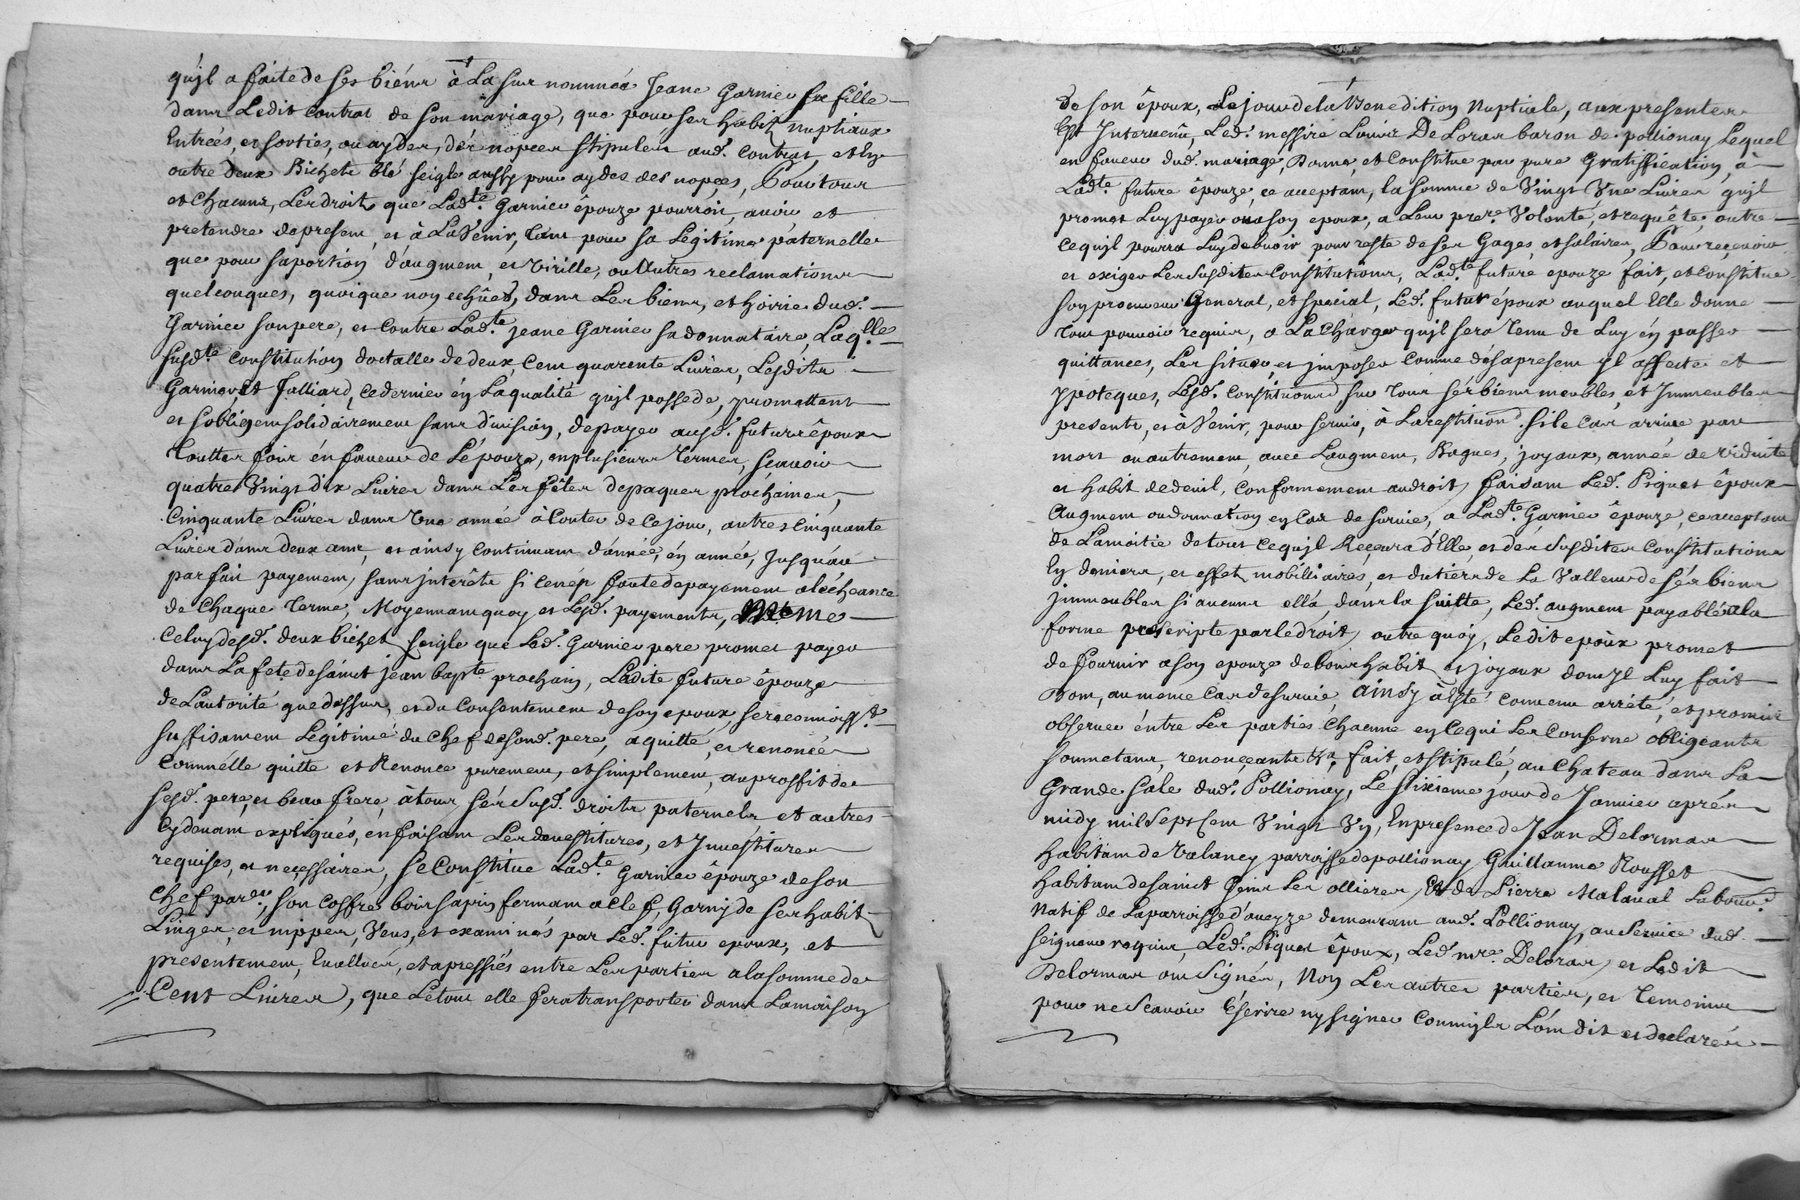 qu'jl a faite de ses biéns à La sus nommée Jeane Garnier sa fille
dans Ledit Contrat de son mariage, que pour ses habit nuptiaux
Entreés, et sorties, ou aydes, dés nopces stipulés aud. contrat, et En
outre deux Bichets blé seigle aussy pour aydes des nopçes, Pour tous
et Chacuns, Les droits que Lad.te Garnier épouze pourroit, avoir et
pretendre de present, et à L'avénir, tant pour sa Légitime paternelle
que pour sa portion d'augment, et virille, ou Autres reclamations
quelconques, quoique non echûes, dans Les biens, et hoirie dud.
Garnier son pere, et Contre Lad.te jeane Garnier sa donnataire, Laq.lle
susd.te constitution dotalle de deux Cent quarente Livres, Lesdits
Garnier et Julliard, ce dernier en La qualité qu'jl possede, promettent
et s'obligent solidairement sans division, de payer ausd. futurs époux
Touttes fois én faveur de L'épouze, en plusieurs termes, sçavoir
quatre Vingt dix Livres dans Les fêtes de paques prochaines,
Cinquante Livres dans Une année à Conter de ce jour, autres Cinquante
Livres dans deux ans, et ainsy Continuant d'année, en année, Jusqu'au
parfait payement, sans jnterêts si ce n'ést faute de payement à l'échéance
de Chaque terme, Moyennant quoy et Lesd. payements, Même
Celuy desd. deux bichet seigle que Led. Garnier pere promet payer
dans La fete de saint jean bap.te prochain, Ladite future épouze
de L'autorité que dessus, et du Consentement de son epoux, se reconnoiss.t
suffisament Légitimé du Chef de sond. pere, a quitté, et renoncé
Comm'élle quitte et Renonce purement, et simplement, au proffit de
sesd. pere, et beau frere, à tous sés susd. droits paternels et autres
Cydevant expliqués, en faisant Les devestitures, et Jnvestitures
requises, et necessaires, se Constitue Lad.te Garnier épouze de son
Chef par.er, son Coffre bois sapin fermant a Clef, Garny de ses habit
Linges, et nippes, Veus, et examinés par Led. futur epoux, et
presentement, Evallués, et apressiés entre Les parties a la somme de
Cent Livres, que Le tout elle fera transporter dans La maison
de son époux, Le jour de la Benedition Nuptiale, aux presentes
Est Intervenû, Led. messire Louis De Loras baron de pollionay Lequel
en faveur dud. mariage, Donne, et Constitue par pure Gratiffication, à
Lad.te future épouze, ce acceptant, la somme de Vingt Une Livres qu'jl
promet Luy payer ou a son epoux, a Leur pre.re Volonté, et requête, outre
ce qu'jl pourra Luy debvoir pour reste de ses Gages, et salaires, Pour reçevoir
et exiger Les susdites Constitutions, Lad.te future epouze fait, et Constitue
son procureur General, et spécial, Led. futur époux auquel Elle donne
tout pouvoir requis, a La Charge qu'jl sera tenu de Luy én passer
quittances, Les situer et jmposer comme dés a present jl affecte et
ypoteques, Lesd. Constitutions sur tous sés biens meubles, et Jmmeubles
presents, et à Venir, pour servir, à La restitution si le Cas arrive par
mort ou autrement, avec L'augment, Bagues, joyaux, année de viduité
et habit de deuil, conformement au droit, faisant Led. Piquet époux
Augment ou donnation en Cas de survie, a Lad.te Garnier épouze, ce acceptant
de La moitié de tout ce qu'jl Reçevra d'Elle et des susdites Constitutions
En deniers, et effets mobilliaires, et du tiers de La Valleur de sés biens
jmmeubles si aucuns ella, dans la suitte, Led. augment payable a la
forme prescripte par le droit, outre quoy, Ledit epoux promet
de fournir a son epouze de bons habit et joyaux dont jl Luy fait
Don, au même Cas de survie, ainsy à Eté convenu arrété, et promis
observer éntre Les parties Chacune en Ce qui Les Conserne obligeants
soumetans, renonçeants &a, fait, et stipulé, au Chateau dans La
Grande sale dud. Pollionay, Le sixieme jour de Janvier aprés
midy mil sept Cent Vingt Un, En presence de Jean Delormas
habitant de Valancy parroisse de pollionay, Guillaume Rousset
habitant de sainct Genis Les ollieres, Et de Pierre Malaval Labour.r
Natif de La parroisse d'aveyze demeurant aud. Pollionay, au service dud.
seigneur requis, Led. Piquet époux, Led. m.re Deloras, et Ledit
Delormas ont signés, Non Les autres parties, et temoins
pour ne sçavoir Éscrire ny signer Comm'jls L'ont dit et declarés